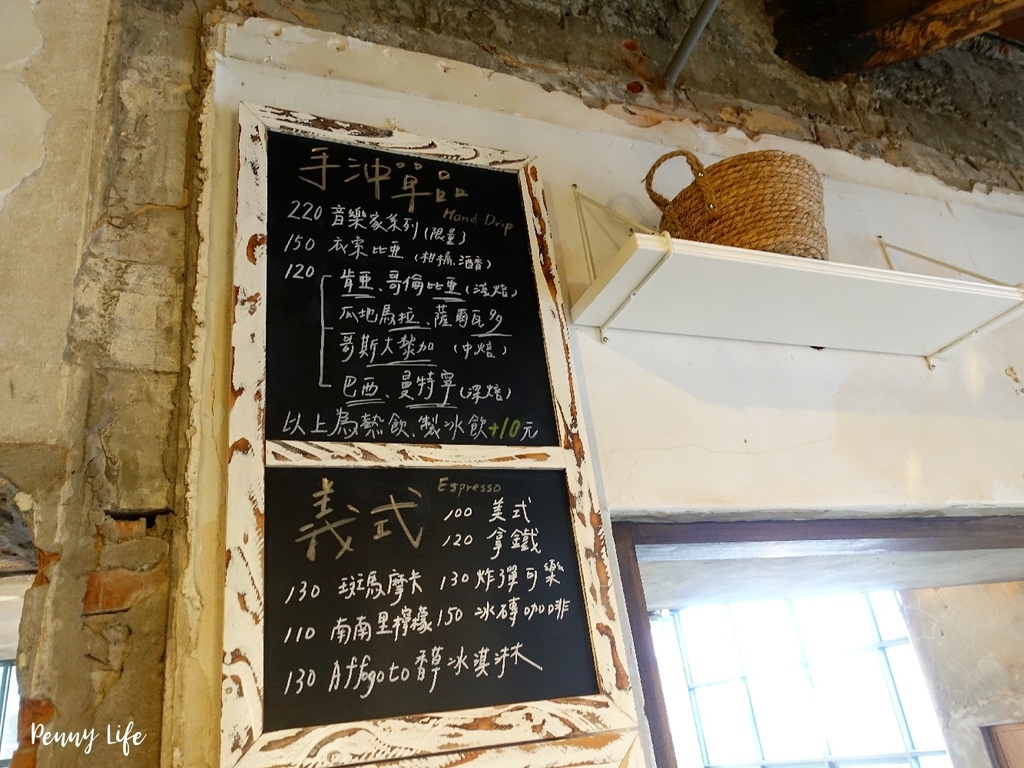 手沖單品
Hand Drip
220 音樂家系列(限量)
150 衣索比亞 (柑橘.酒香)
120 肯亞、哥倫比亞(淺焙)
瓜地馬拉、薩爾瓦多
哥斯大黎加 (中焙)
巴西、曼特寧(深焙)
以上為熱飲、製冰飲+10元
義式 Espresso
100 美式
120 拿鐵
130 斑馬摩卡 130 炸彈可樂
110 南南里檸檬 150 冰磚咖啡
130 Affogato 香草冰淇淋
Penny Life